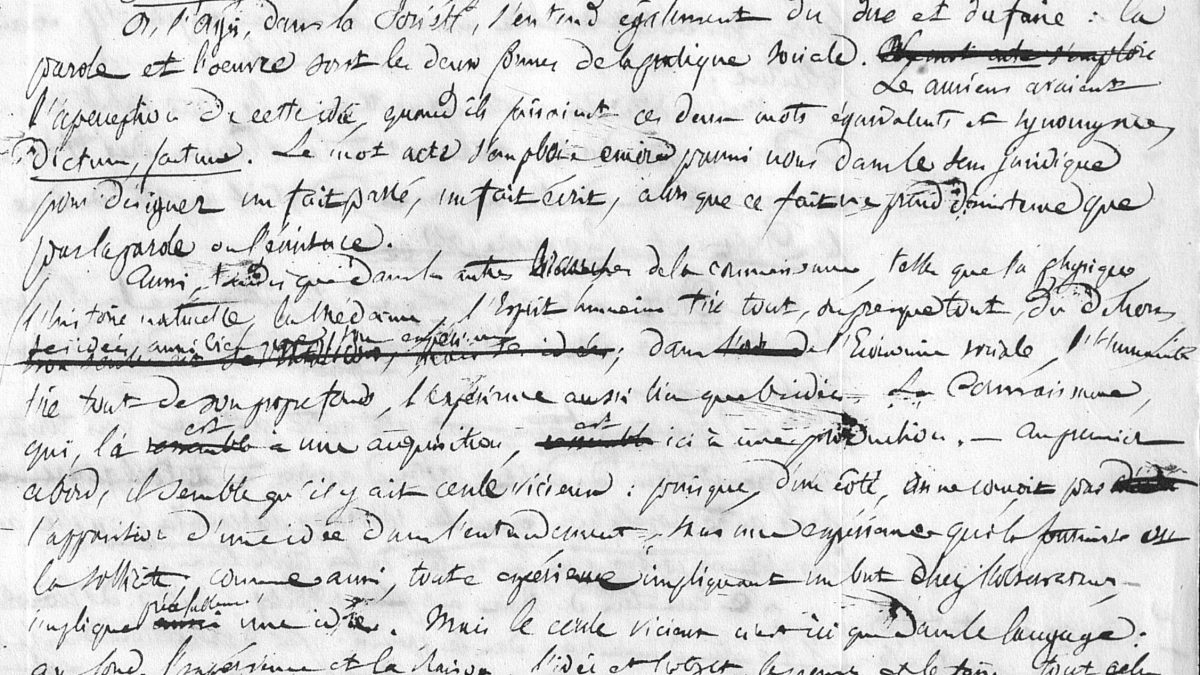 Or, l'agir, dans la Société, s'entend également du dire et du faire : la
parole et l'œuvre sont les deux formes de la pratique sociale. s'emploie
Les anciens avaient
l'aperception de cette idée, quand ils faisaient ces deux mots équivalents et synonymes,
dictum, factum. Le mot acte s'emploie encore parmi nous dans le sens juridique
pour désigner un fait parlé, un fait écrit, alors que ce fait ne prend d'existence que
par la parole ou l'écriture.
Aussi, tandis que dans les autres branches de la connaissance, telles que la physique,
l'histoire naturelle, la médecine, l'Esprit humain tire tout, ou presque tout, du dehors,
ses idées, aussi bien que son expérience
; dans l'Economie sociale, l'Humanité
tire tout de son propre fonds, l'expérience aussi bien que les idées. La Connaissance,
est est
qui, là a une acquisition, ici a une production. — Au premier
abord, il semble qu'il y ait cercle vicieux : puisque, d'un côté, on ne conçoit pas
l'apparition d'une idée dans l'entendement, sans une expérience qui la fournisse ou
la sollicite, comme aussi, toute expérience impliquant un but chez l'observateur,
implique une idée. Mais le cercle vicieux n'est ici que dans le langage :
au fond, l'expérience et la Raison, l'idée et l'objet, et le tout